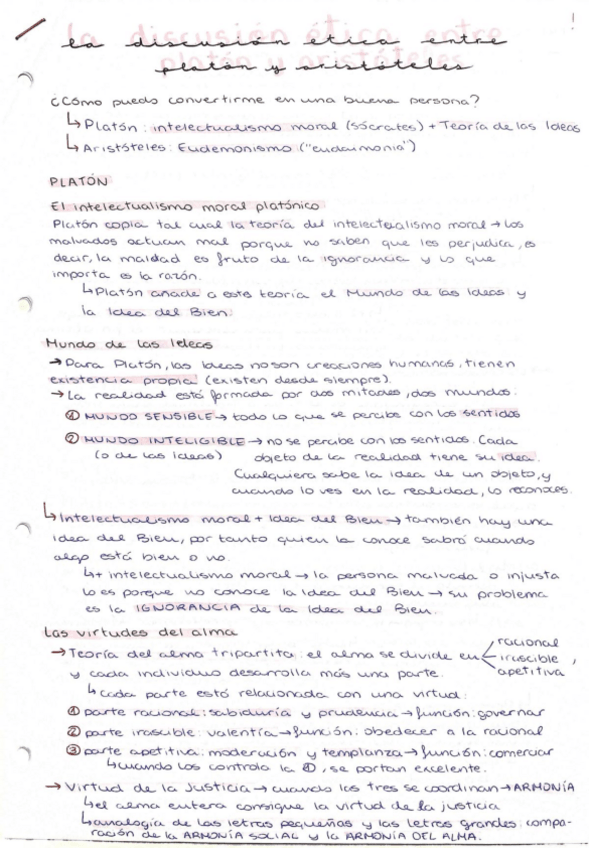 la discusión ética entre
platón y aristóteles
¿Cómo puedo convertirme en una buena persona?
↳ Platón: intelectualismo moral (sócrates) + Teoría de las Ideas
↳ Aristóteles: Eudemonismo ("eudaimonia")
PLATÓN
El intelectualismo moral platónico
Platón copia tal cual la teoría del intelectualismo moral → los
malvados actuan mal porque no saben que les perjudica, es
decir, la maldad es fruto de la ignorancia y lo que
importa es la razón.
↳ Platón añade a esta teoría el Mundo de las Ideas y
la Idea del Bien.
Mundo de las Ideas
→ Para Platón, las Ideas no son creaciones humanas, tienen
existencia propia (existen desde siempre).
→ La realidad está formada por dos mitades, dos mundos:
① MUNDO SENSIBLE → todo lo que se percibe con los sentidos
② MUNDO INTELIGIBLE → no se percibe con los sentidos. Cada
(o de las Ideas) objeto de la realidad tiene su idea.
Cualquiera sabe la idea de un objeto, y
cuando lo ves en la realidad, lo reconoces.
↳ Intelectualismo moral + Idea del Bien → también hay una
idea del Bien, por tanto quien la conoce sabrá cuando
algo está bien o no.
↳ + intelectualismo moral → la persona malvada o injusta
lo es porque no conoce la Idea del Bien → su problema
es la IGNORANCIA de la Idea del Bien.
Las virtudes del alma
→ Teoría del alma tripartita: el alma se divide en racional
irascible,
y cada individuo desarrolla más una parte. apetitiva
↳ cada parte está relacionada con una virtud:
① parte racional: sabiduría y prudencia → función: governar
② parte irascible: valentía → función: obedecer a la racional
③ parte apetitiva: moderación y templanza → función: comerciar
↳ cuando los controla la ①, se portan excelente.
→ Virtud de la Justicia → cuando las tres se coordinan → ARMONÍA
↳ el alma entera consigue la virtud de la justicia
↳ analogía de las letras pequeñas y las letras grandes: compa-
ración de la ARMONÍA SOCIAL y la ARMONÍA DEL ALMA.